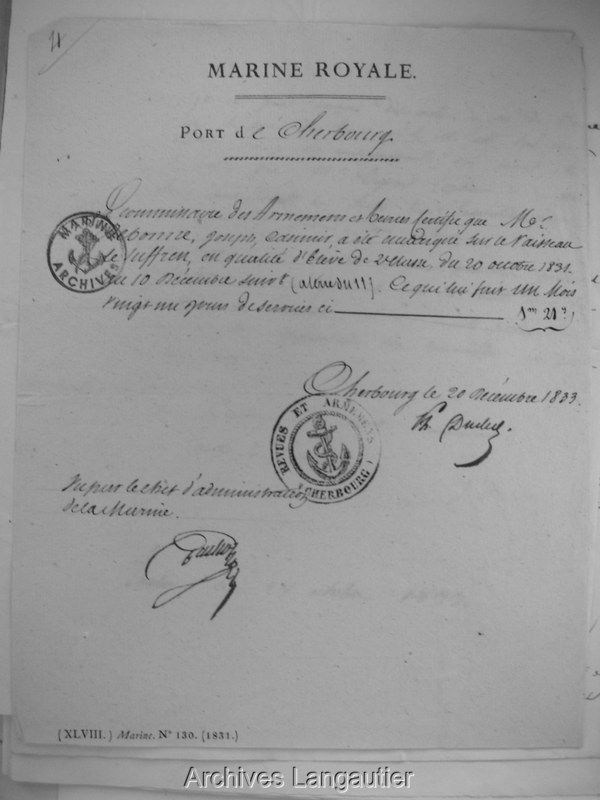 MARINE ROYALE.
PORT de Cherbourg
MARINE
ARCHIVES
Commissaire des Armemens et Revues Certifie que Mr.
Joseph, Casimir, a été embarqué sur le Vaisseau
le Suffren, en qualité d'Elève de 2e classe, du 20 octobre 1831.
au 10 Décembre suivt. Ce qui lui fait un Mois
vingt un jours de services ci 1m 21j
Cherbourg le 20 Décembre 1833.
REVUES ET ARMEMENS
CHERBOURG
Vu par le chef d'administration
de la Marine.
(XLVIII.) Marine. N° 130. (1831.)
Archives Langautier